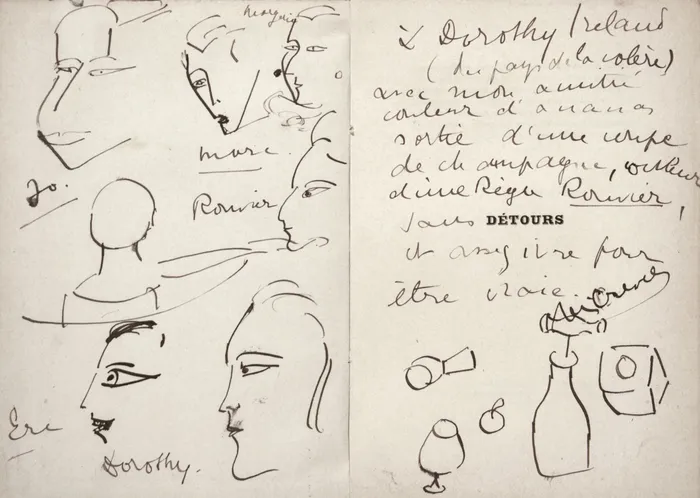 marc.
Jo.
Rouvier
Dorothy.
à Dorothy Ireland
(du pays de la colère)
avec mon amitié
couleur d'ananas
sortie d'une coupe
de champagne, couleur
d'une Rouvier,
sans DÉTOURS
et assez ivre pour
être vraie.
Crevel